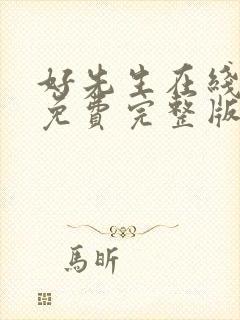 好先生在线
免費完整版
馬昕